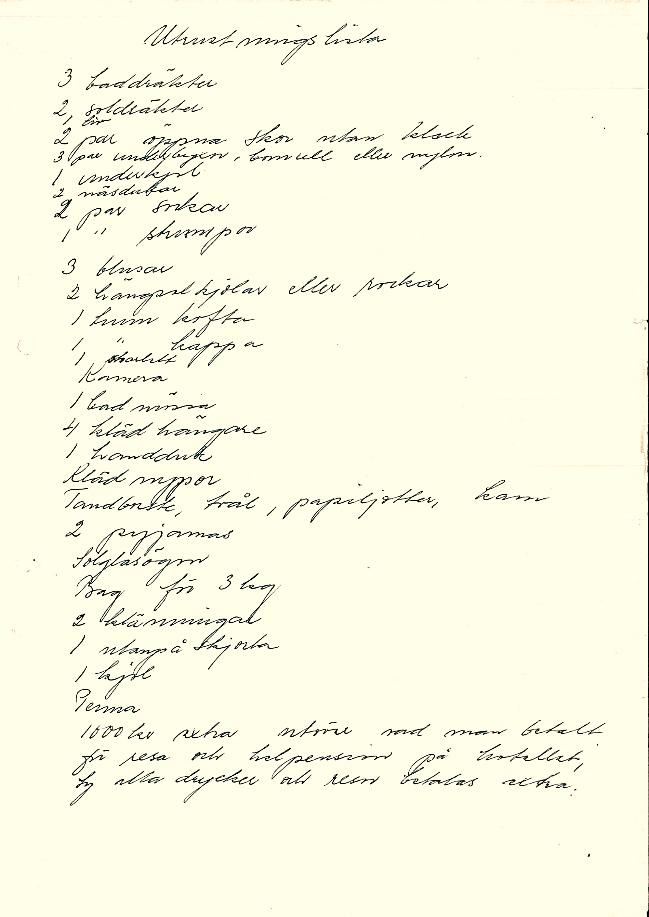 Utrustningslista
3 baddräkter
2 soldräkter
2 par öppna skor utan klack
3 par underbyxor, bomull eller nylon.
1 underkjol
2 näsdukar
2 par sockar
1 " strumpor
3 blusar
2 hängselkjolar eller sockar
1 tunn kofta
1 " kappa
1
Kamera
1 bad mössa
4 kläd hängare
1 handduk
Kläd nypor
Tandborste, tvål, papiljotter, kam
2 pyjamas
Solglasögon
Bag för 3 kg
2 klänningar
1 utanpå skjorta
1 kjol
Penna
1000 kr extra utöver vad man betalt
för resa och helpension på hotellet,
ty alla drycker och resor betalas extra.